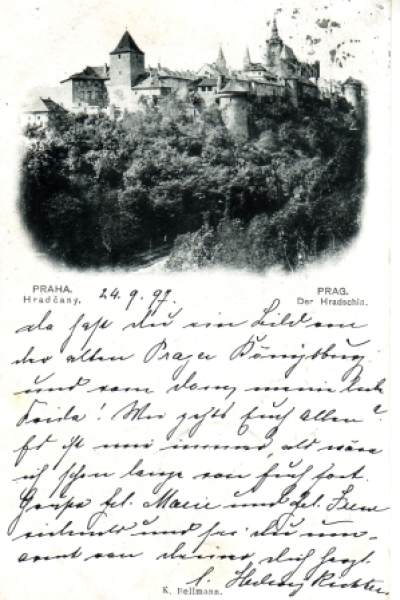 PRAHA.
Hradčany.
PRAG.
Der Hradschin.
24. 9. 97.
da hast du ein Bild von
der alten Prager Königsburg
und vom Dom, meine liebe
! Wie gehts Euch allen?
Es ist mir immer, als wäre
ich schon lange von Euch fort.
Grüße Frl. Marie und Frl.
und sei du um-
armt von deiner dich herzl.
l. Hedwig Richter
K. Bellmann.